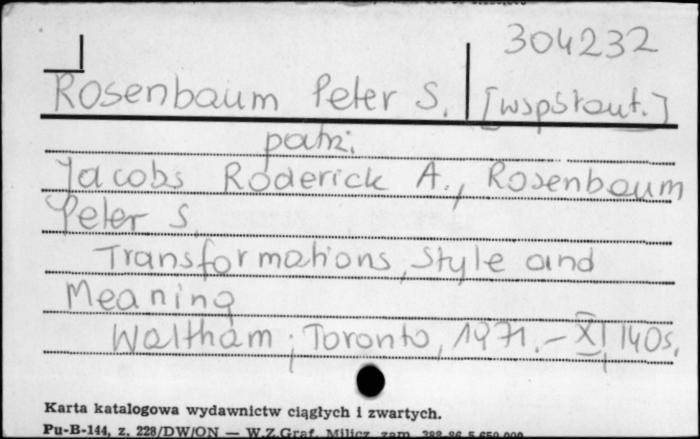 304232
Rosenbaum Peter S. [współaut.]
patrz:
Jacobs Roderick A., Rosenbaum
Peter S.
Transformations, Style and
Meaning
Waltham ; Toronto, 1971. – XI, 140s.
Karta katalogowa wydawnictw ciągłych i zwartych.
Pu-B-144, z. 228/DW/ON — W.Z.Graf. Milicz zam.